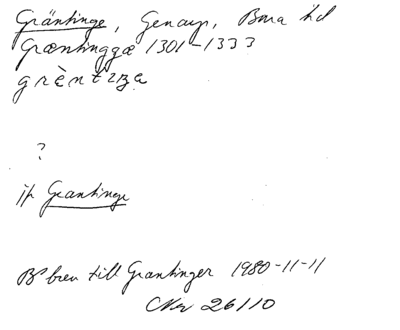 Gräntinge, Genarp, Bara hd
Græntinggæ 1301-1333
grèntıŋə
?
jfr Grantinge
Bs brev till Grantinger 1980-11-11
26/10